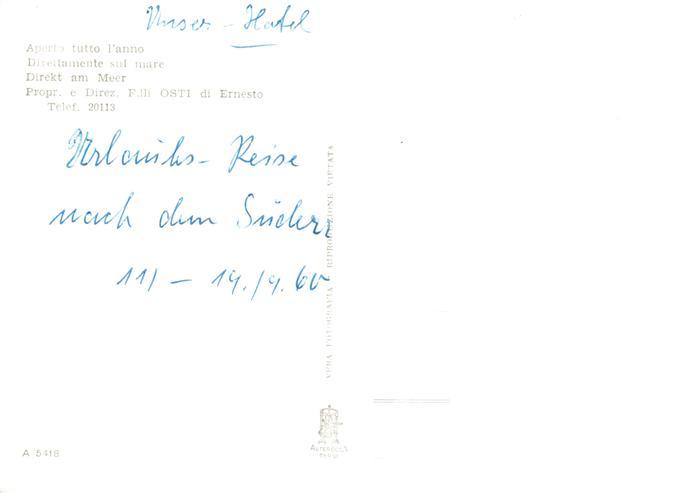 Unser - Hotel
Aperto tutto l'anno
Direttamente sul mare
Direkt am Meer
Propr. e Direz. F.lli OSTI di Ernesto
Telef. 20113
Urlaubs- Reise
nach dem Süden
11) - 19./9. 60
VERA FOTOGRAFIA - RIPRODUZIONE VIETATA
A 5418